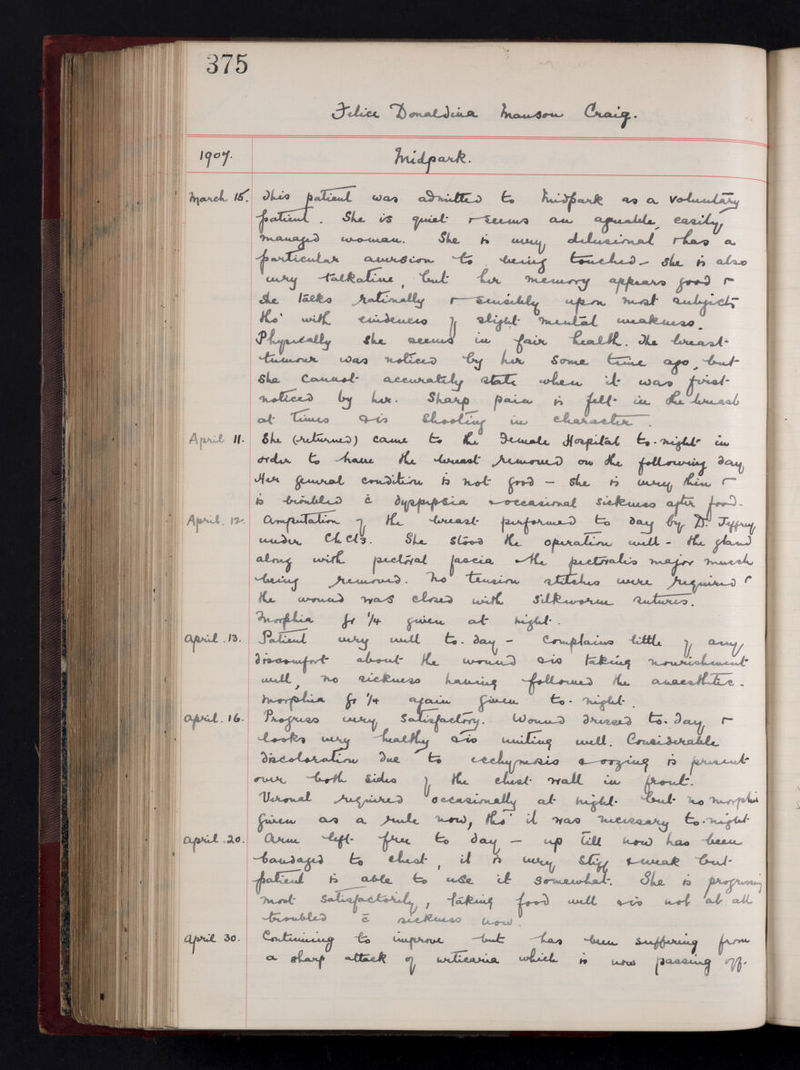 375
Felice Donaldina Manson Craig.
1907. Midpark.
March 15. This patient was admitted to Midpark as a voluntary
patient. She is quiet & seems an agreeable, easily,
managed woman. She is very delusional & has a
particular aversion to being touched - she is also
very talkative, but her memory appears good &
she talks rationally & sensibly upon most subjects
tho' with evidences of slight mental weakness.
Physically she seems in fair health. The breast-
tumour was noticed by her some time ago, but
she cannot accurately state when it was first
noticed by her. Sharp pain is felt in the breast
at times & is shooting in character.
April 11. She (returned) came to the Female Hospital to-night in
order to have the breast removed on the following day
Her general condition is not good - she is very thin &
is troubled c̄ dyspepsia & occasional sickness after food.
April. 12. Amputation of the breast performed to day by Dr Jeffrey
under Ch Cl3. She stood the operation well - the gland
along with pectoral fascia & the pectoralis major muscle
being removed. No tension stitches were required &
the wound was closed with silkworm sutures.
Morphia gr 1/4 given at night.
April. 13. Patient very well to-day - complains little of any
discomfort about the wound & is taking nourishment
well, no sickness having followed the anaesthetic.
Morphia gr 1/4 again given to-night.
April. 16. Progress very satisfactory. Wound dressed to-day &
looks very healthy & is uniting well. Considerable
discoloration due to ecchymosis & oozing is present
over both sides of the chest wall in front.
Veronal required occasionally at night but no morphia
given as a rule now, tho' it was necessary to-night
April. 20. Arm left free to day - up till now has been
bandaged to chest, it is very stiff & weak but
patient is able to use it somewhat. She is progressing
most satisfactorily, taking food well & is not at all
troubled c̄ sickness now.
April 30. Continuing to improve but has been suffering from
a sharp attack of urticaria which is now passing off.